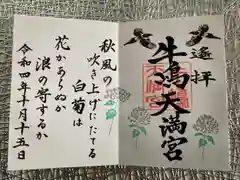 遥拝
牛嶋天満宮
秋風の
吹き上げにたてる
白菊は
花かあらぬか
浪の寄するか
令和四年十月十五日